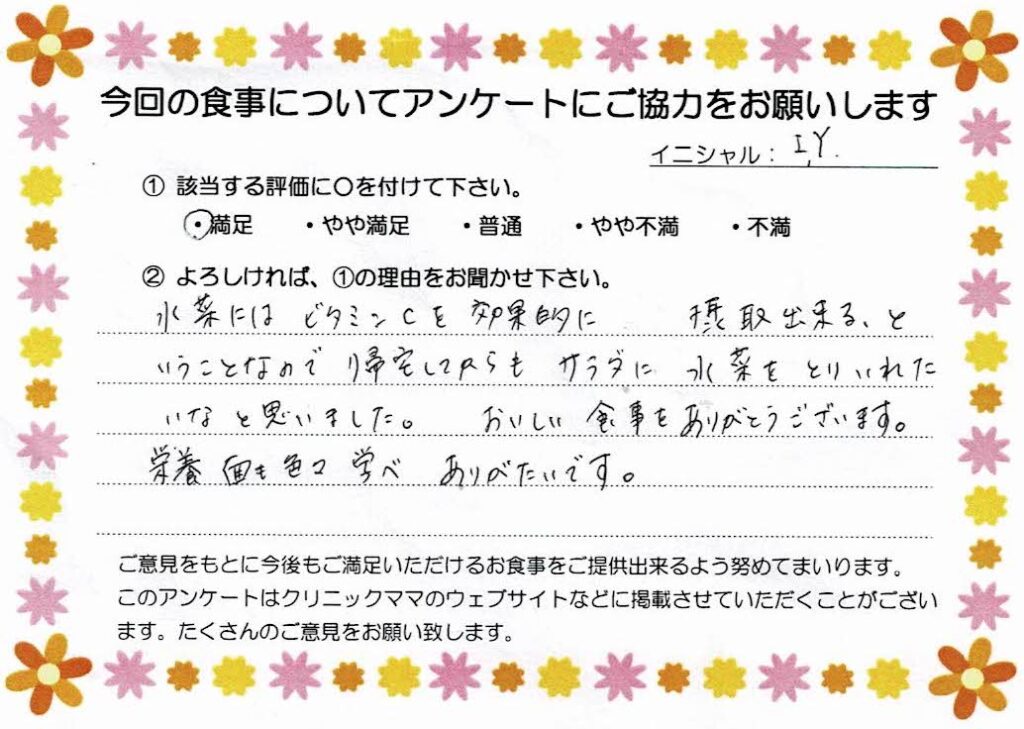 今回の食事についてアンケートにご協力をお願いします
イニシャル： I.Y.
① 該当する評価に○を付けて下さい。
・満足 ・やや満足 ・普通 ・やや不満 ・不満
② よろしければ、①の理由をお聞かせ下さい。
水菜には ビタミンCを 効果的に 摂取出来る、と
いうことなので 帰宅してからも サラダに 水菜を とりいれた
いなと思いました。 おいしい 食事をありがとうございます。
栄養面も色々 学べ ありがたいです。
ご意見をもとに今後もご満足いただけるお食事をご提供出来るよう努めてまいります。
このアンケートはクリニックママのウェブサイトなどに掲載させていただくことがござい
ます。たくさんのご意見をお願い致します。